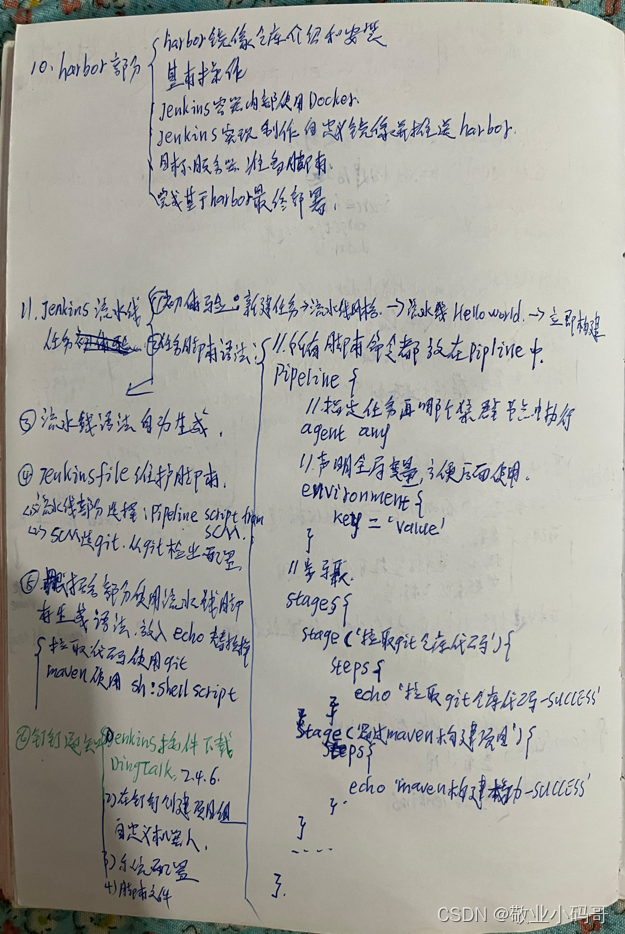 10、harbor部分
harbor镜像仓库介绍和安装
基本操作
Jenkins容器内部使用Docker.
Jenkins实现制作自定义镜像并推送harbor.
目标服务器准备脚本.
完成基于harbor最终部署.
11、Jenkins流水线任务
①初体验:新建任务→流水线风格.→流水线Hello world.→立即构建
②任务脚本语法:
//所有脚本命令都放在pipline中.
Pipeline {
//指定任务再哪个集群节点中执行
agent any
//声明全局变量,方便后面使用.
environment {
key = 'value'
}
//步骤.
stages {
stage('拉取git仓库代码') {
steps {
echo '拉取git仓库代码-SUCCESS'
}
}
stage('通过maven构建项目') {
steps {
echo 'maven构建-SUCCESS'
}
}
....
}.
③流水线语法自动生成.
④Jenkinsfile维护脚本.
<1>流水线部分选择:Pipeline script from SCM.
<2>SCM选git.从git检出配置
⑤部分使用流水线脚本生成语法,放入echo替换掉
拉取代码使用git
maven使用 sh:shell script
1)Jenkins插件下载
DingTalk, 2.4.6.
2)在钉钉创建项目组
自定义机器人.
3)系统配置
4)脚本文件
CSDN @敬业小码哥